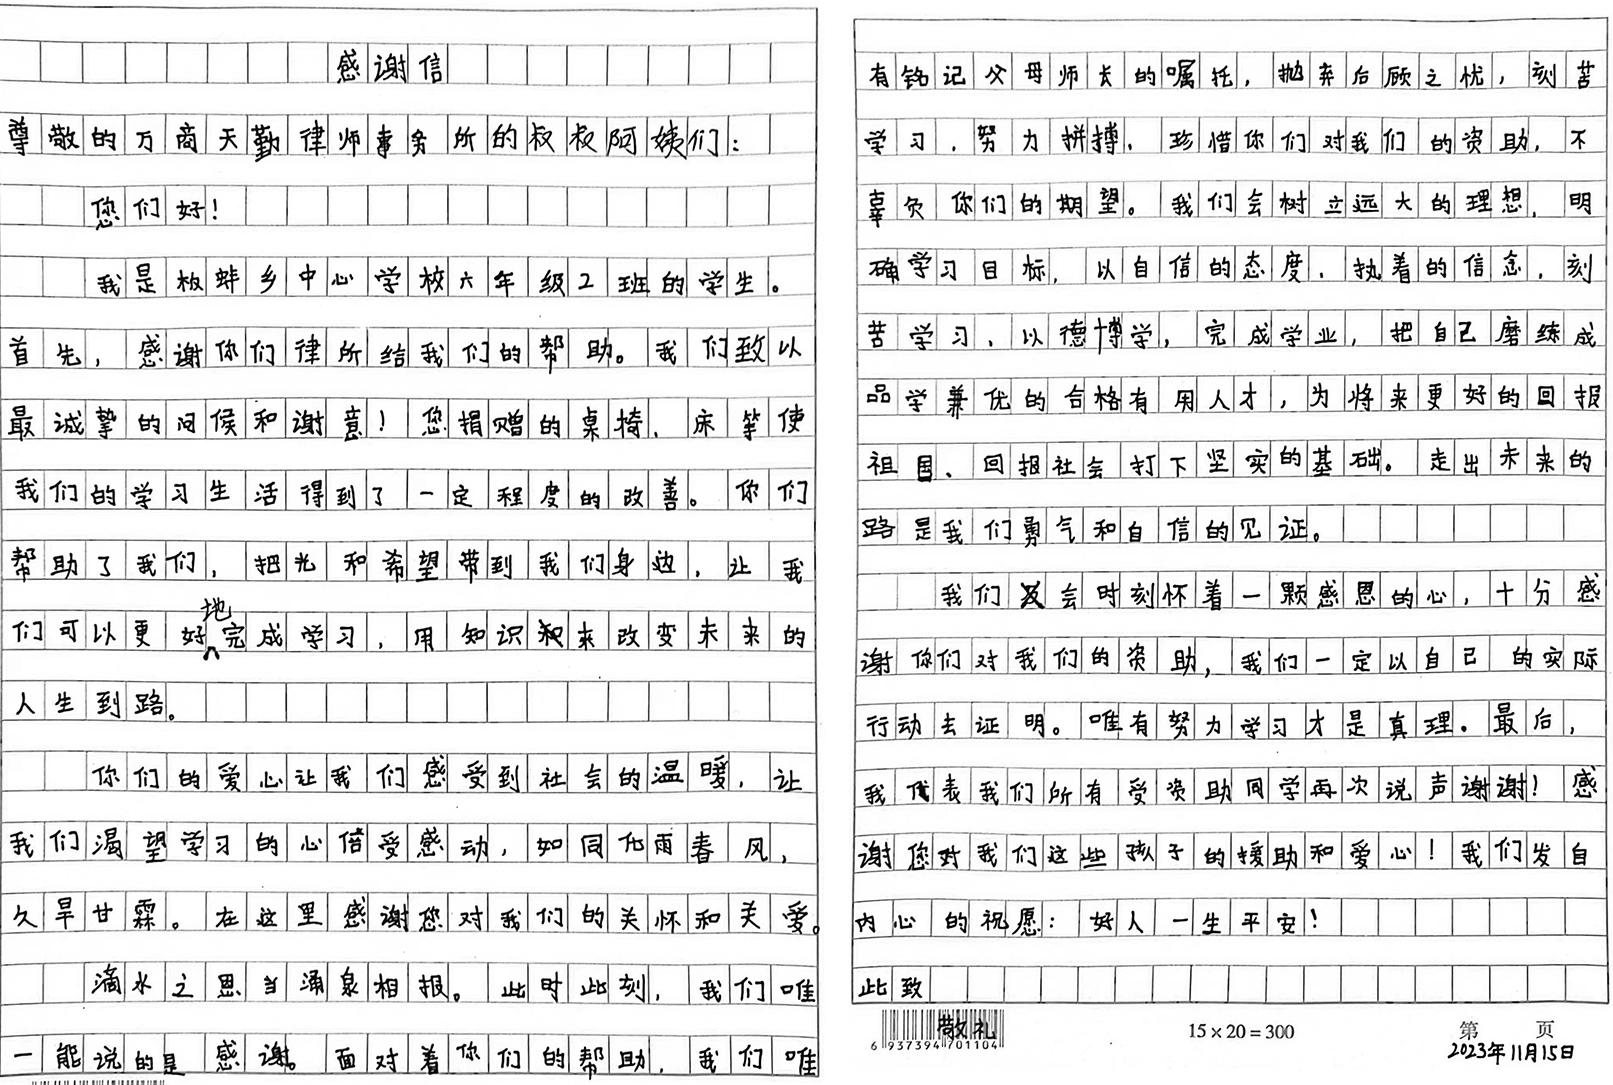 感谢信
尊敬的万商天勤律师事务所的叔叔阿姨们：
您们好！
我是板蚌乡中心学校六年级2班的学生。
首先，感谢你们律所给我们的帮助。我们致以
最诚挚的问候和谢意！您捐赠的桌椅、床等使
我们的学习生活得到了一定程度的改善。你们
帮助了我们，把光和希望带到我们身边，让我
们可以更好地完成学习，用知识来改变未来的
人生到路。
你们的爱心让我们感受到社会的温暖，让
我们渴望学习的心倍受感动，如同化雨春风，
久旱甘霖。在这里感谢您对我们的关怀和关爱。
滴水之恩当涌泉相报。此时此刻，我们唯
一能说的是感谢。面对着你们的帮助，我们唯
有铭记父母师长的嘱托，抛弃后顾之忧，刻苦
学习，努力拼搏，珍惜你们对我们的资助，不
辜负你们的期望。我们会树立远大的理想，明
确学习目标，以自信的态度，执着的信念，刻
苦学习，以德博学，完成学业，把自己磨练成
品学兼优的合格有用人才，为将来更好的回报
祖国、回报社会打下坚实的基础。走出未来的
路是我们勇气和自信的见证。
我们会时刻怀着一颗感恩的心，十分感
谢你们对我们的资助，我们一定以自己的实际
行动去证明。唯有努力学习才是真理。最后，
我代表我们所有受资助同学再次说声谢谢！感
谢您对我们这些孩子的援助和爱心！我们发自
内心的祝愿：好人一生平安！
此致
敬礼
6 937394 701104
15×20=300
第 页
2023年11月15日